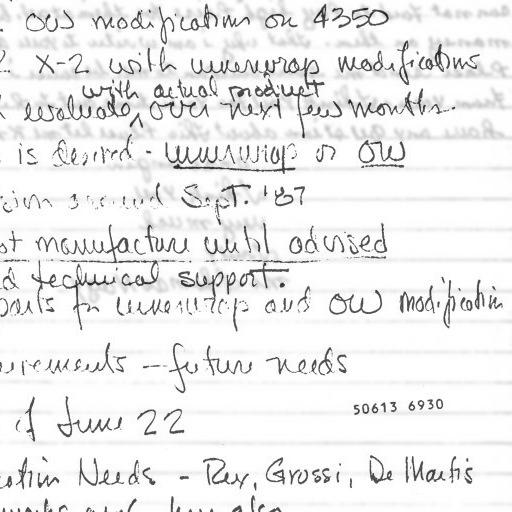 OW modification on 4350
X-2 with innerwrap modifications
with actual product
evaluate ^ over next few months.
is desired - innerwrap or OW
around Sept. '87
manufacture until advised
technical support.
parts for innerwrap and OW modification
- future needs
of June 22
50613 6930
Needs - Rex, Grossi, De Martis
also